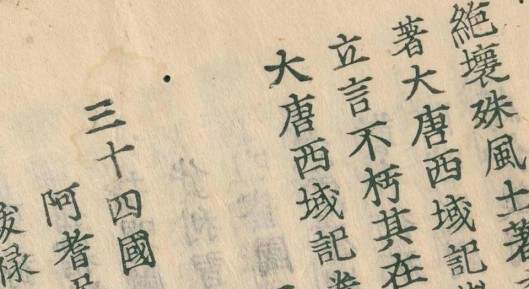 絕壤殊風土著
著大唐西域記
立言不朽其在
大唐西域記卷
三十四國
阿耆
祿